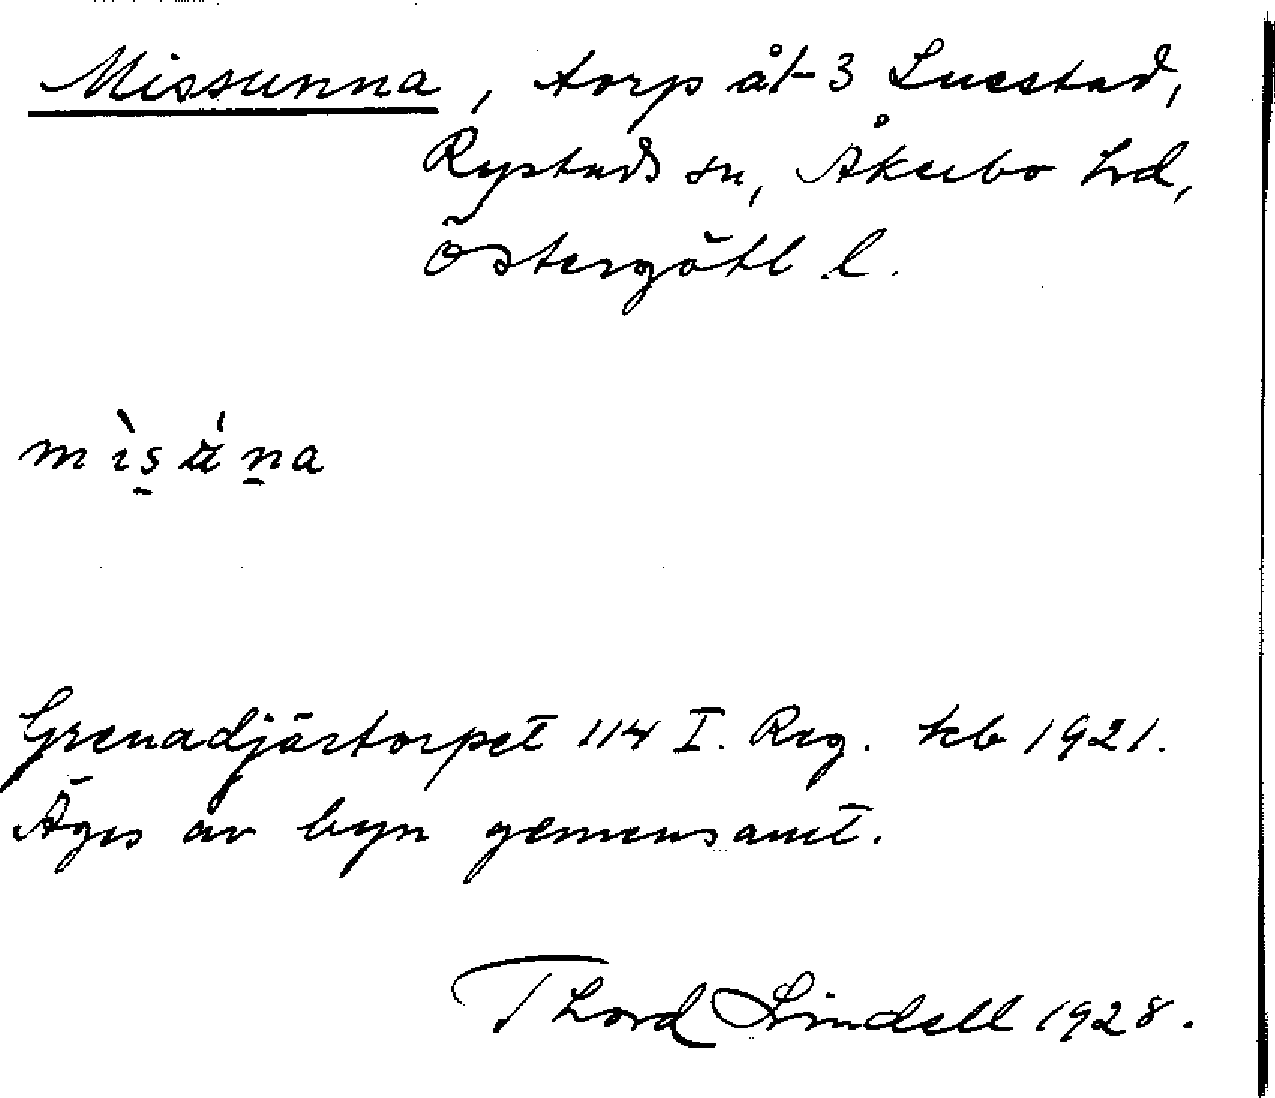 Missunna, torp åt 3 Luestad,
Rystads sn, Åkerbo hd,
Östergötl l.
Grenadjärtorpet 114 I. Reg. kb 1921.
Äges av byn gemensamt.
Thord Lindell 1928.